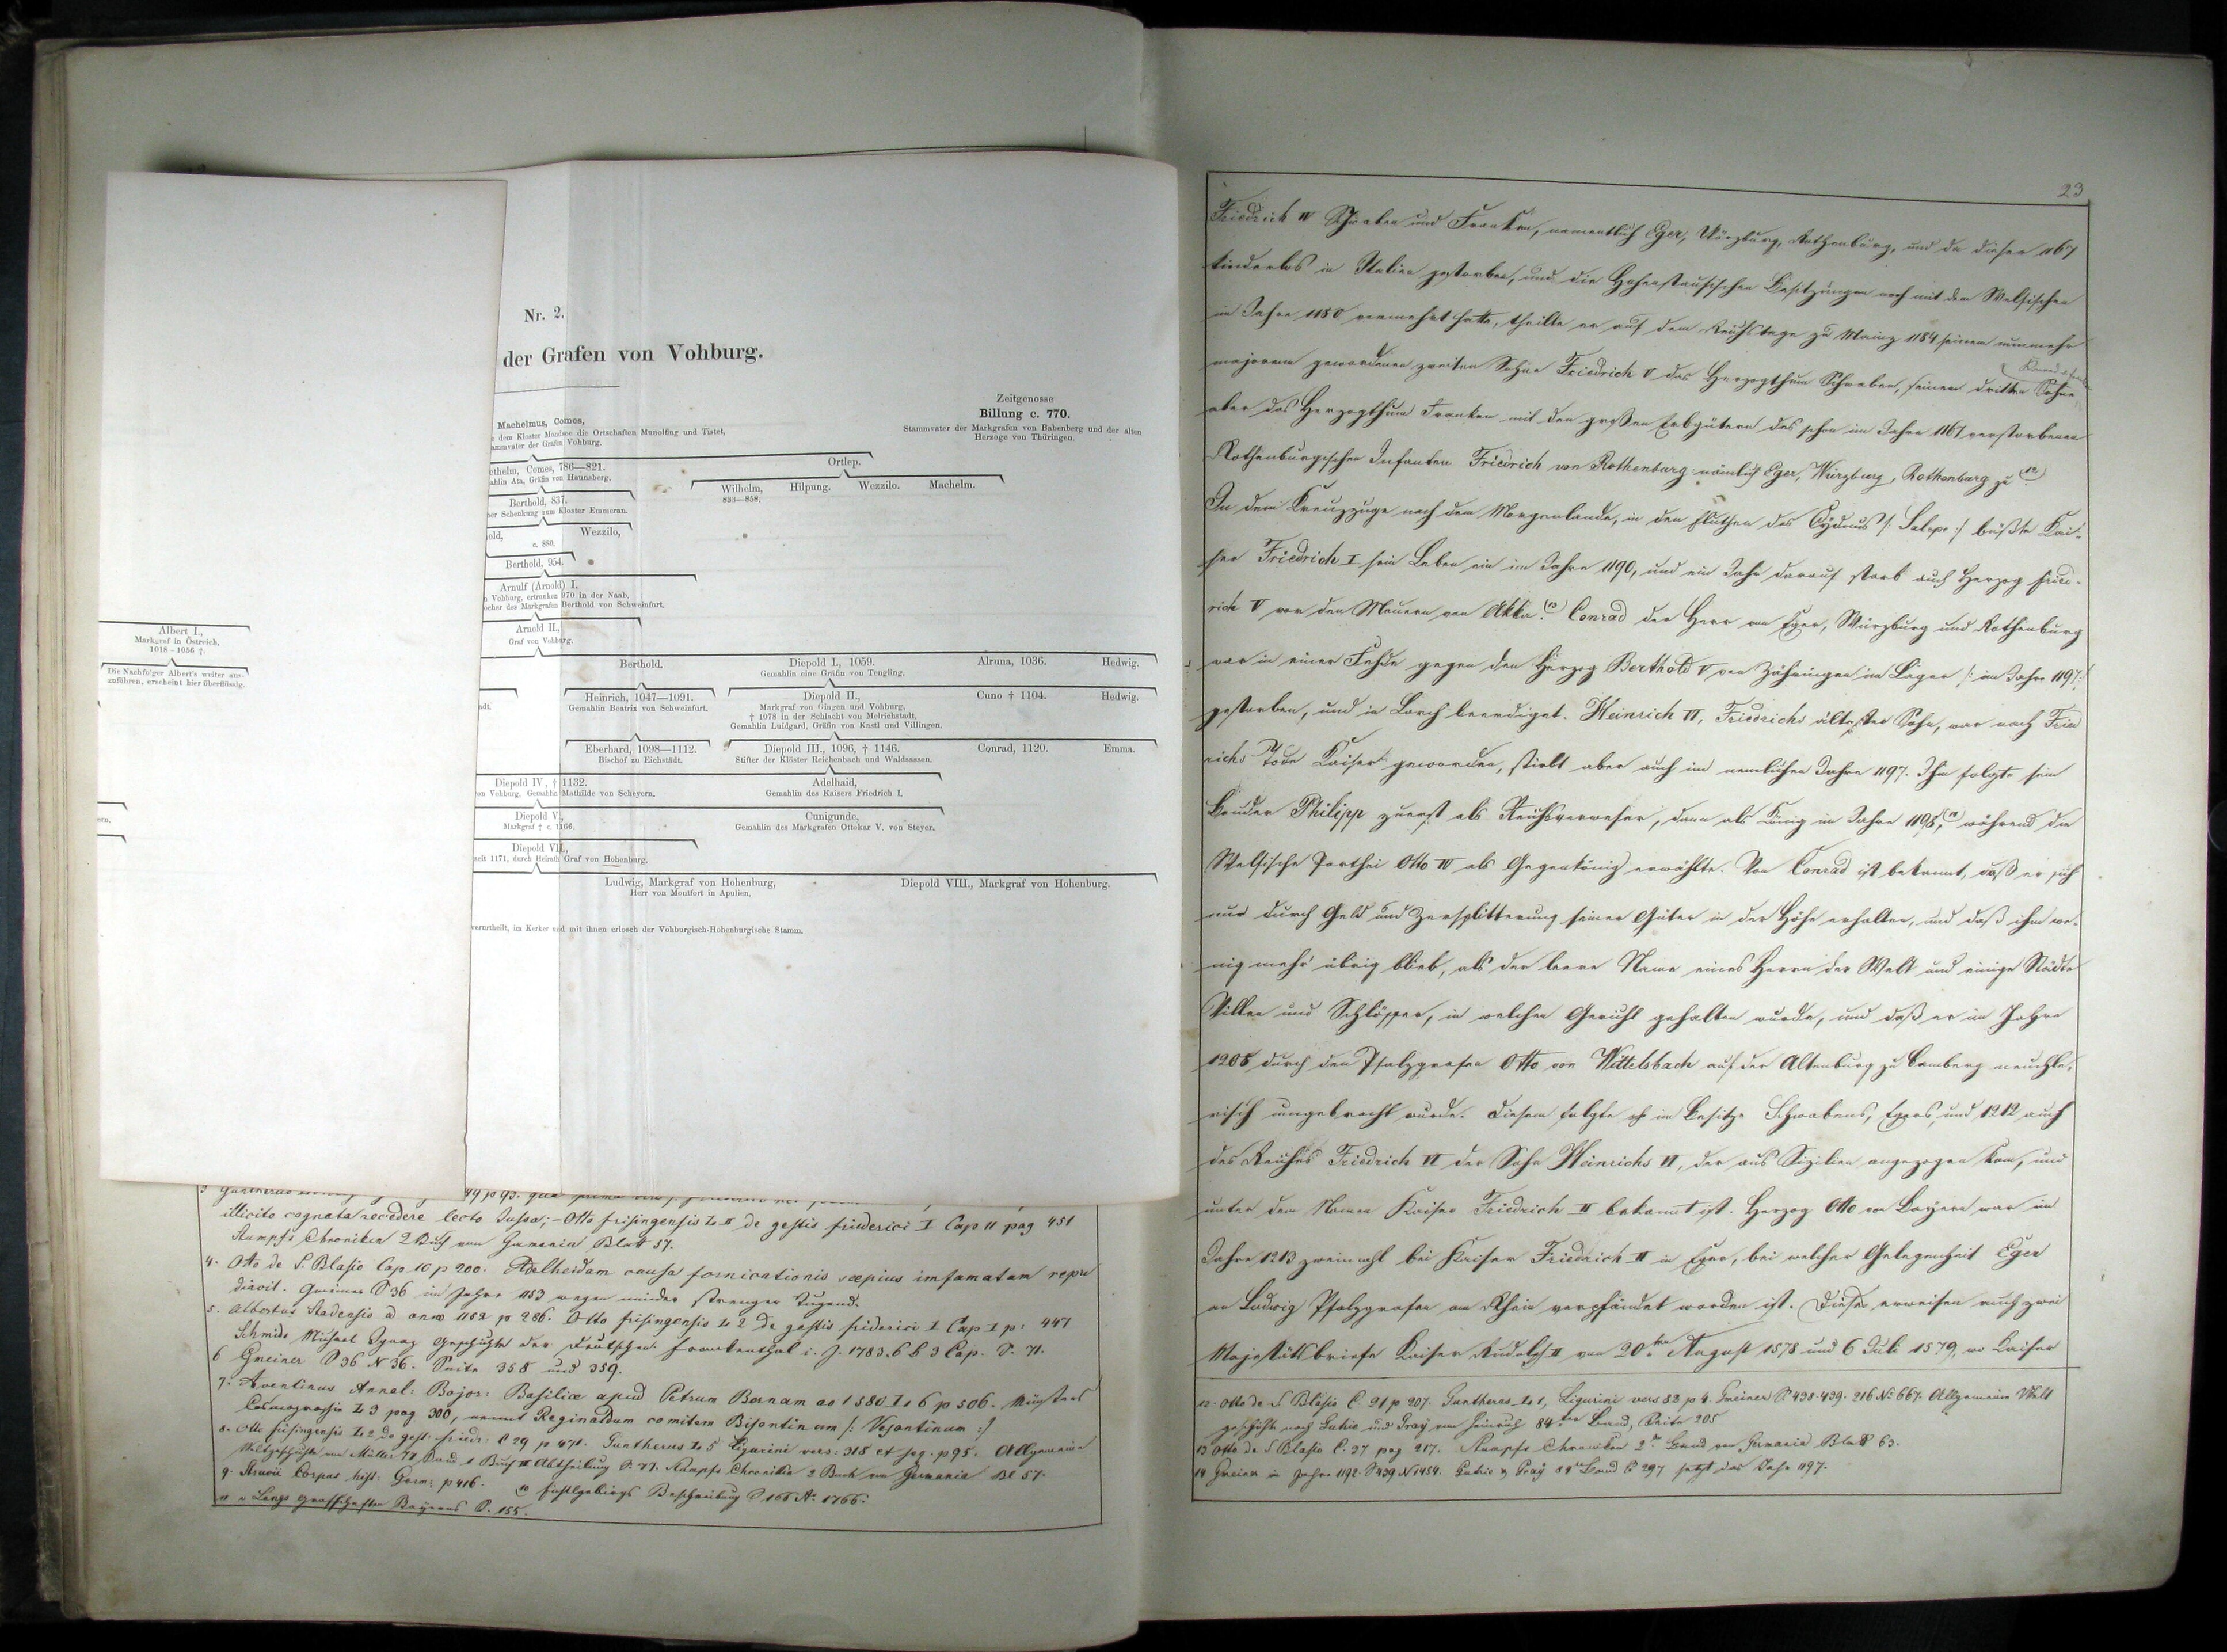 Nr. 2.
der Grafen von Vohburg.
Zeitgenosse
Billung c. 770.
Stammvater der Markgrafen von Babenberg und der alten
Herzoge von Thüringen.
Machelmus, Comes,
dem Kloster Mondsee die Ortschaften Munolfing und Tistet,
ammvater der Grafen Vohburg.
ethelm, Comes, 786—821.
ahlin Ata, Gräfin von Haunsberg.
Ortlep.
Berthold, 837.
ner Schenkung zum Kloster Emmeran.
Wilhelm, Hilpung. Wezzilo. Machelm.
833—858.
old, Wezzilo,
c. 880.
Berthold, 954.
Arnulf (Arnold) I.
n Vohburg, ertrunken 970 in der Naab.
ocher des Markgrafen Berthold von Schweinfurt.
Arnold II.,
Graf von Vohburg.
Albert I.,
Markgraf in Östreich,
1018–1056 †.
Die Nachfolger Albert's weiter aus-
zuführen, erscheint hier überflüssig.
Berthold. Diepold I., 1059. Alruna, 1036. Hedwig.
Gemahlin eine Gräfin von Tengling.
adt. Heinrich, 1047—1091. Diepold II., Cuno † 1104. Hedwig.
Gemahlin Beatrix von Schweinfurt. Markgraf von Giagen und Vohburg,
† 1078 in der Schlacht von Melrichstadt.
Gemahlin Luidgard, Gräfin von Kastl und Villingen.
Eberhard, 1098—1112. Diepold III., 1096, † 1146. Conrad, 1120. Emma.
Bischof zu Eichstädt. Stifter der Klöster Reichenbach und Waldsassen.
Diepold IV., † 1132. Adelhaid,
von Vohburg, Gemahlin Mathilde von Scheyern, Gemahlin des Kaisers Friedrich I.
ern. Diepold V., Cunigunde,
Markgraf † c. 1166. Gemahlin des Markgrafen Ottokar V. von Steyer.
Diepold VII.,
seit 1171, durch Heirath Graf von Hohenburg.
Ludwig, Markgraf von Hohenburg, Diepold VIII., Markgraf von Hohenburg.
Herr von Montfort in Apulien,
verurtheilt, im Kerker und mit ihnen erlosch der Vohburgisch-Hohenburgische Stamm.
illicito cognata recedere lecto Jussa; – Otto frisingensis L. II de gestis friederici I Cap 11 pag 451
Stumpfs Chroniken 2 Buch von Germania Blatt 57.
4. Otto de S. Blasio Cap 10 p 200. Adelheidam causa fornicationis sæpius imfamatam repu
diavit. Greiner S 36 im Jahre 1153 wegen minder strenger Tugend.
5. Albertus Stadensis ad anno 1152 p 286. Otto frisingensis L 2 de gestis friderici I Cap I p: 447
Schmids Michael Ignaz Geschichte der Deutschen Frankenthal i. J. 1783. 6 b 3 Cap. S. 71.
6 Greiner S 36 N 36. Seite 358 und 359.
7. Aventinus Annal: Bojor: Basiliæ apud Petrum Bernam ao 1580 L. 6 p 506. Münsters
Cosmografia L 3 pag 300, nennt Reginaldum comitem Bisontin um /: Vesontinum :/
8. Otto frisingensis L. 2 de gest: fried: C 29 p 471. Guntherus L. 5 Ligurini vers: 318 et seg. p 95. Allgemeine
Weltgeschichte von Müller 7t Band 1 Buch II Abtheilung S. 73. Stumpfs Chronika 2 Buch von Germania Bl 57.
9. Struvii Corpus hist: Germ: p 416. 10 fichtlgebirgs Beschreibung S 166 A: 1766.
11 v Langs Grafschaften Bayerns S. 155.
23
Friedrich IV Schwaben und Franken, namentlich Eger, Würzburg, Rothenburg, und da dieser 1167
kinderlos in Italien gestorben, und die Hohenstaufischen Besitzungen noch mit den Welfischen
im Jahre 1180 vermehrt hatte, theilte er auf dem Reichstage zu Mainz 1184 seinem nunmehr
majorenn gewordenen zweiten Sohne Friedrich V das Herzogthum Schwaben, seinem dritten Sohne
aber das Herzogthum Franken mit den großen Erbgütern des schon im Jahre 1167 verstorbenen
Rothenburgischen Infanten Friedrich von Rothenburg nämlich Eger, Würzburg, Rothenburg zu 12)
In dem Kreuzzuge nach dem Morgenlande, in den Fluthen des Cydnus /: Salepe :/ büßte Kai-
ser Friedrich I sein Leben ein im Jahre 1190, und ein Jahr darauf starb auch Herzog Fried-
rich V vor den Mauern von Akka. 13) Conrad der Herr von Eger, Würzburg und Rothenburg
war in einer Fehde gegen den Herzog Berthold V von Zähringen im Lager /: im Jahre 1197 :/
gestorben, und in Lorch beerdiget. Heinrich VI, Friedrichs ältester Sohn, war nach Fried
richs Tode Kaiser geworden, stirbt aber auch im nemlichen Jahre 1197. Ihm folgte sein
Bruder Philipp zuerst als Reichsverweser, dann als König im Jahre 1198, 14) während die
Welfische Parthei Otto IV als Gegenkönig erwählte. Von Conrad ist bekannt, daß er sich
nur durch Geld und Zersplitterung seiner Güter in der Höhe erhalten, und daß ihm we-
nig mehr übrig blieb, als der leere Name eines Herrn der Welt und einige Städte
Villen und Schlösser, in welchen Gericht gehalten wurde, und daß er im Jahre
1208 durch den Pfalzgrafen Otto von Wittelsbach auf der Altenburg zu Bamberg meuchle-
risch umgebracht wurde. Diesem folgte im Besitze Schwabens, Egers, und 1212 auch
des Reiches Friedrich VI der Sohn Heinrichs VI, der aus Sizilien angezogen kam, und
unter dem Namen Kaiser Friedrich II bekannt ist. Herzog Otto von Bayern war im
Jahre 1213 zweimahl bei Kaiser Friedrich II in Eger, bei welcher Gelegenheit Eger
an Ludwig Pfalzgrafen am Rhein verpfändet worden ist. Dieses erweisen auch zwei
Majestätsbriefe Kaiser Rudolph II vom 20ten August 1578 und 6 Juli 1579, wo Kaiser
12. Otto de S Blasio C. 21 p 207. Guntheras L. 1, Ligurini vers 82 p 4. Greiner S. 438. 439. 216 N: 667. Allgemeine Welt
geschichte nach Gutrie und Gray von Heinrich 84ter Band, Seite 205
13 Otto de S Blasio C. 37 pag 217. Stumpfs Chroniken 2ter Band von Germania Blatt 63.
14 Greiner im Jahre 1192. S 439 N 1454. Gutrie & Gray 84ter Band S 297 setzt das Jahr 1197.